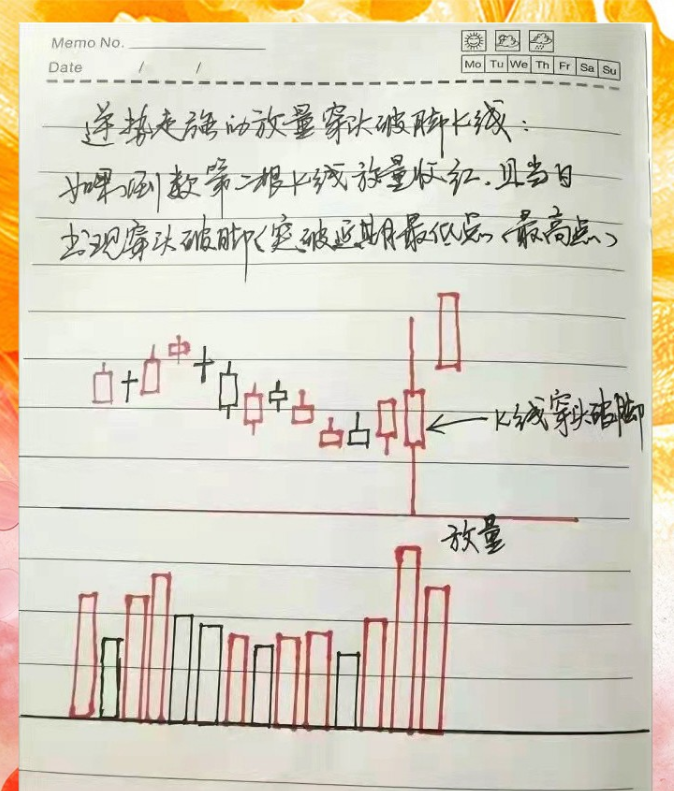 Memo No.
Date / /
Mo Tu We Th Fr Sa Su
逆势走强的放量穿头破脚K线：
如果倒数第二根K线放量收红，且当日
出现穿头破脚（突破近期最低点、最高点）
K线穿头破脚
放量